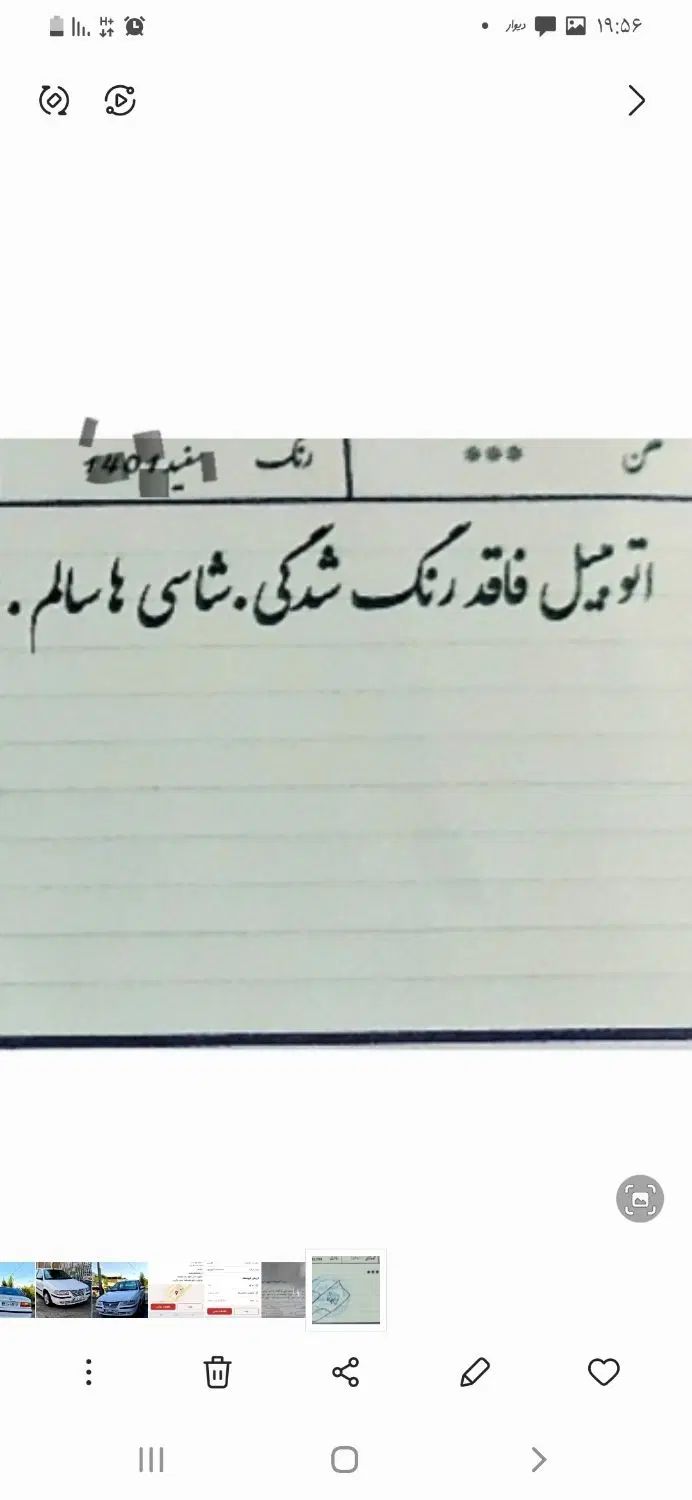 ۱۹:۵۶
دیوار
H+
رنگ سفید 1401
***
اتومبیل فاقد رنگ شدگی . شاسی ها سالم .